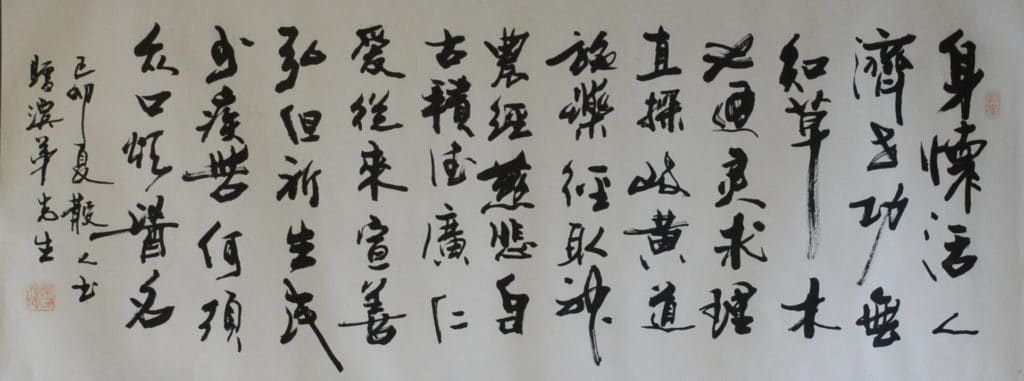 身懷活人
濟世功無
知草木
也通灵求理
直探岐黄道
施藥徑取神
農經慈悲自
古積德廣仁
愛從來宣善
弘但祈生民
少疾苦何須
众口頌醫名
己卯夏散人书
贈濱華先生